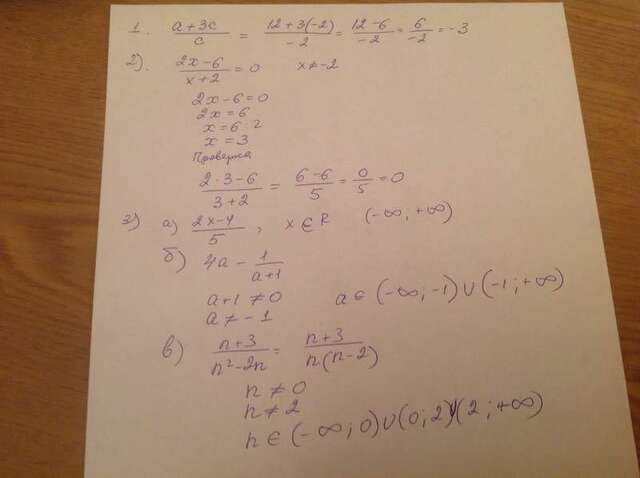 1. (a+3c)/c = (12+3(-2))/-2 = (12-6)/-2 = 6/-2 = -3
2). (2x-6)/(x+2) = 0 x≠-2
2x-6=0
2x=6
x=6:2
x=3
Проверка
(2·3-6)/(3+2) = (6-6)/5 = 0/5 = 0
3) a) (2x-4)/5 , x∈R (-∞;+∞)
б) 4a - 1/(a+1)
a+1≠0 a∈(-∞;-1)∪(-1;+∞)
a≠-1
в) (n+3)/(n²-2n) = (n+3)/(n(n-2))
n≠0
n≠2
n∈(-∞;0)∪(0;2)∪(2;+∞)